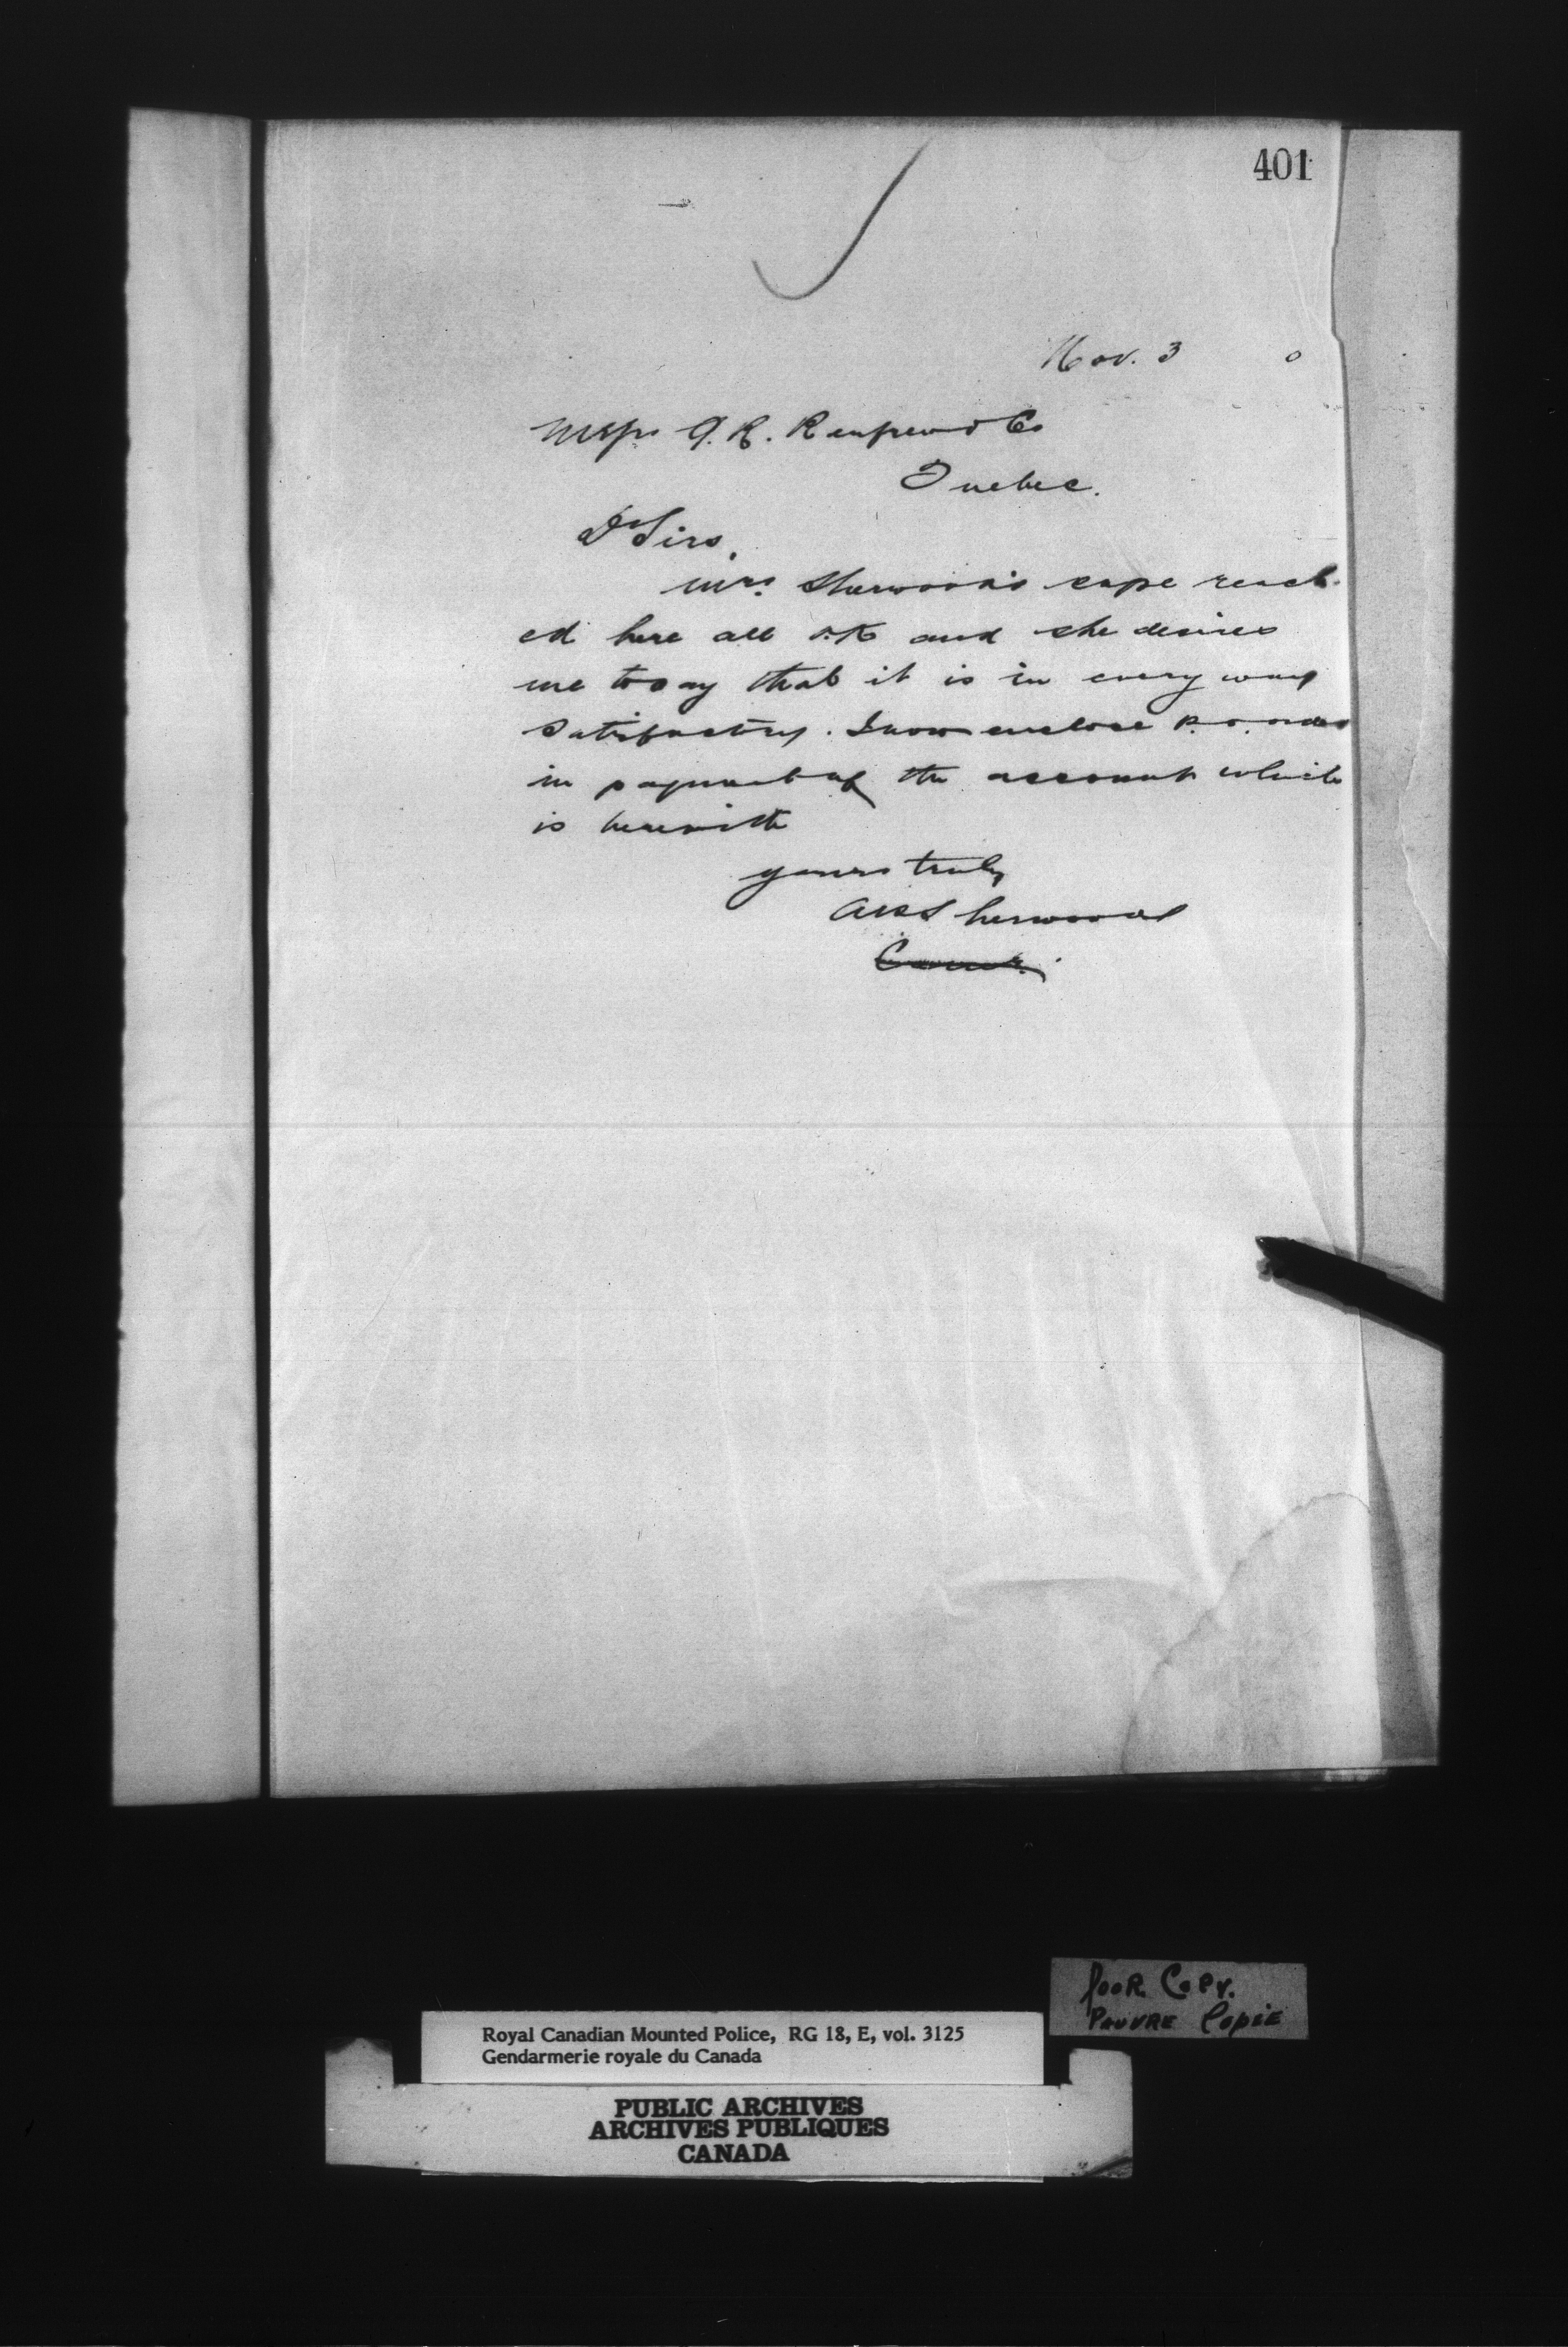 401
Nov. 3 0
Messrs G. R. Renfrew & Co
Quebec.
Dr Sirs,
Mrs. Sherwood's cape reach-
ed here all O.K and she desires
me to say that it is in every way
satisfactory. I now enclose P.O. order
in payment of the account which
is herewith
yours truly
A P Sherwood
Comr.
Poor Copy.
Pauvre Copie
Royal Canadian Mounted Police, RG 18, E, vol. 3125
Gendarmerie royale du Canada
PUBLIC ARCHIVES
ARCHIVES PUBLIQUES
CANADA